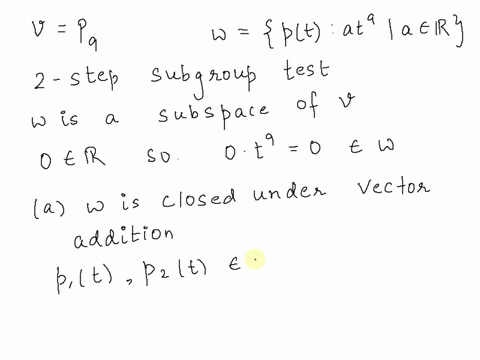 V = P₉ w = {p(t) : at⁹ | a ∈ ℝ}
2-step subgroup test
w is a subspace of V
0 ∈ ℝ so. 0·t⁹ = 0 ∈ w
(a) w is closed under vector
addition
p₁(t), p₂(t) ∈